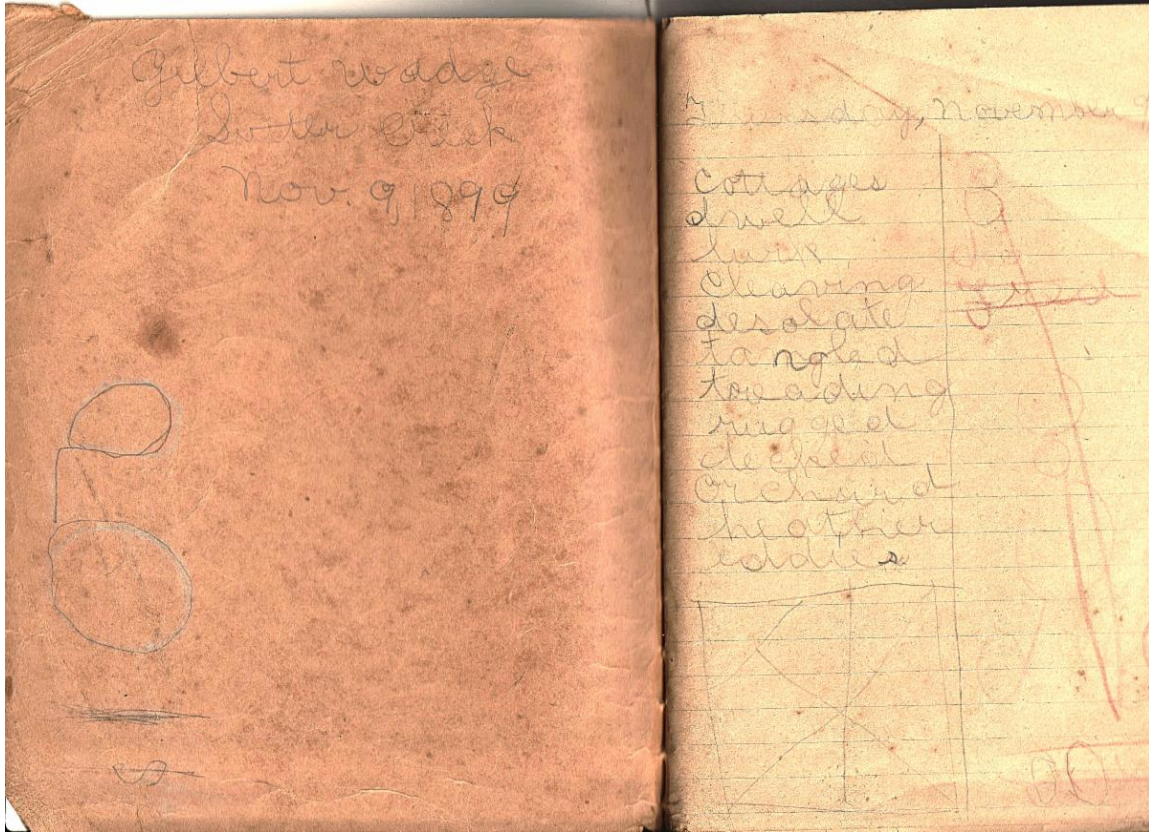 Gilbert
Sutter Creek
Nov. 9, 1899
Thursday, November 9
Cottages
dwell
lurk
Cleaving
desolate
tangled
treading
rugged
decked
Orchard
heather
eddies